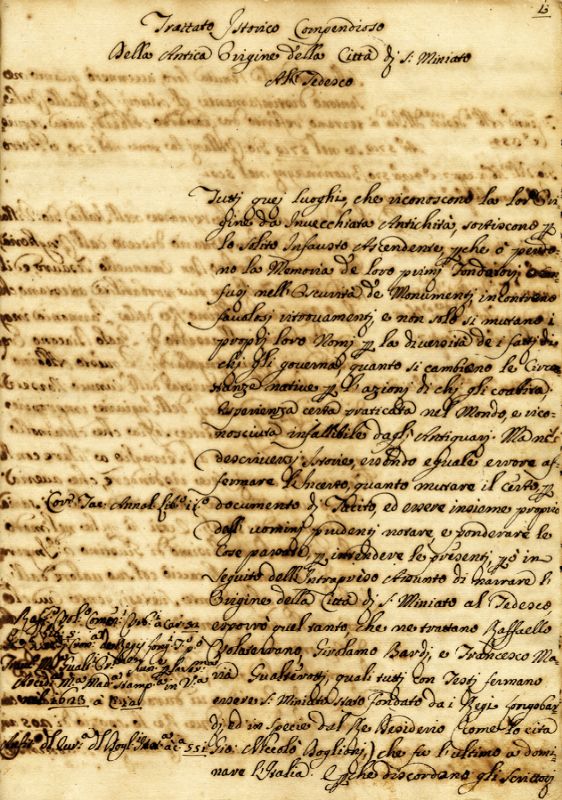 13
Trattato Istorico Compendioso
Della Antica Origine della Città dj S: Miniato
Al Tedesco
Tutti quej Luoghi, che riconoscono la lor Ori
gine da Invecchiata Antichità, sortiscono p
lo solito Infausto Ascendente, pche ò perdo
no la Memoria de loro primj Fondatorj, ò con
fusj nell'Oscurità de Monumentj incontrano
favolosj ritrovamentj, e non solo si mutano i
proprj loro Nomj p la diversità de i fattj di
chj gli governa, quanto si cambiano le Circo
stanze native p l'azionj di chj gli coabita
Esperienza certa praticata nel Mondo, e rico
nosciuta infallibile daglj Antiquarj. Ma nel
descriversj Istorie, essendo eguale errore af
fermare l'Incerto, quanto mutare il Certo, p
Cor: Tac: Annal: lib:
documento dj Tacito, ed essere insieme proprio
degl'uominj prudenti notare, e ponderare le
Cose passate, p intendere le presentj, pò in
seguito dell'Intrapreso Assunto di narrare l'
Origine della Città dj S: Miniato al Tedesco,
esporrò quel tanto, che ne trattano Raffaello
Volaterrano, Girolamo Bardj, e Francesco Ma
ria Gualterottj, quali tutti con Testj fermano
essere S: Miniato stato fondato da i Regi Longobar
dj, ed in Specie dal Re Desiderio Come lo cita
Gio: Niccolò Doglionj, che fu l'ultimo a domi
nare l'Italia: E pche discordano glj Scrittorj